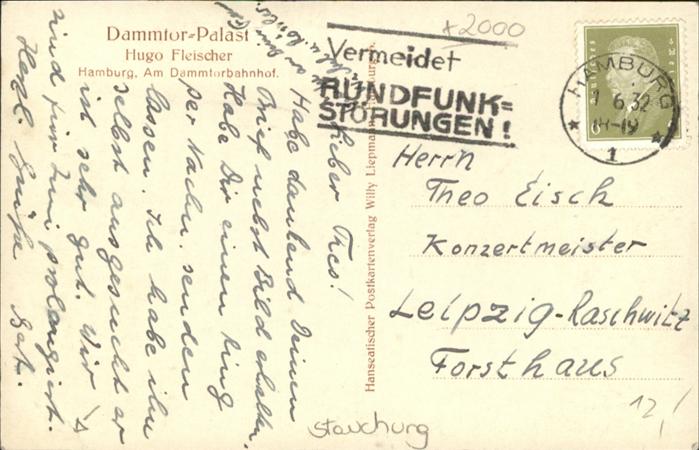 Dammtor-Palast
Hugo Fleischer
Hamburg, Am Dammtorbahnhof.
x2000
Vermeidet
RUNDFUNK=
STÖRUNGEN!
HAMBURG
1.6.32
18-19
1
6
Herrn
Theo Eisch
Konzertmeister
Leipzig-Raschwitz
Forsthaus
Hanseatischer Postkartenverlag Willy Liepmann, Hamburg
Lieber Theo!
Habe dankend Deinen
Brief nebst Bild erhalten.
Habe Dir einen Ring
per Nachn. senden
lassen. Ich habe ihn
selbst ausgesucht er
ist sehr gut. Wir
sind für Juni prolongiert.
Herzl. Grüße
Stauchung
12,-